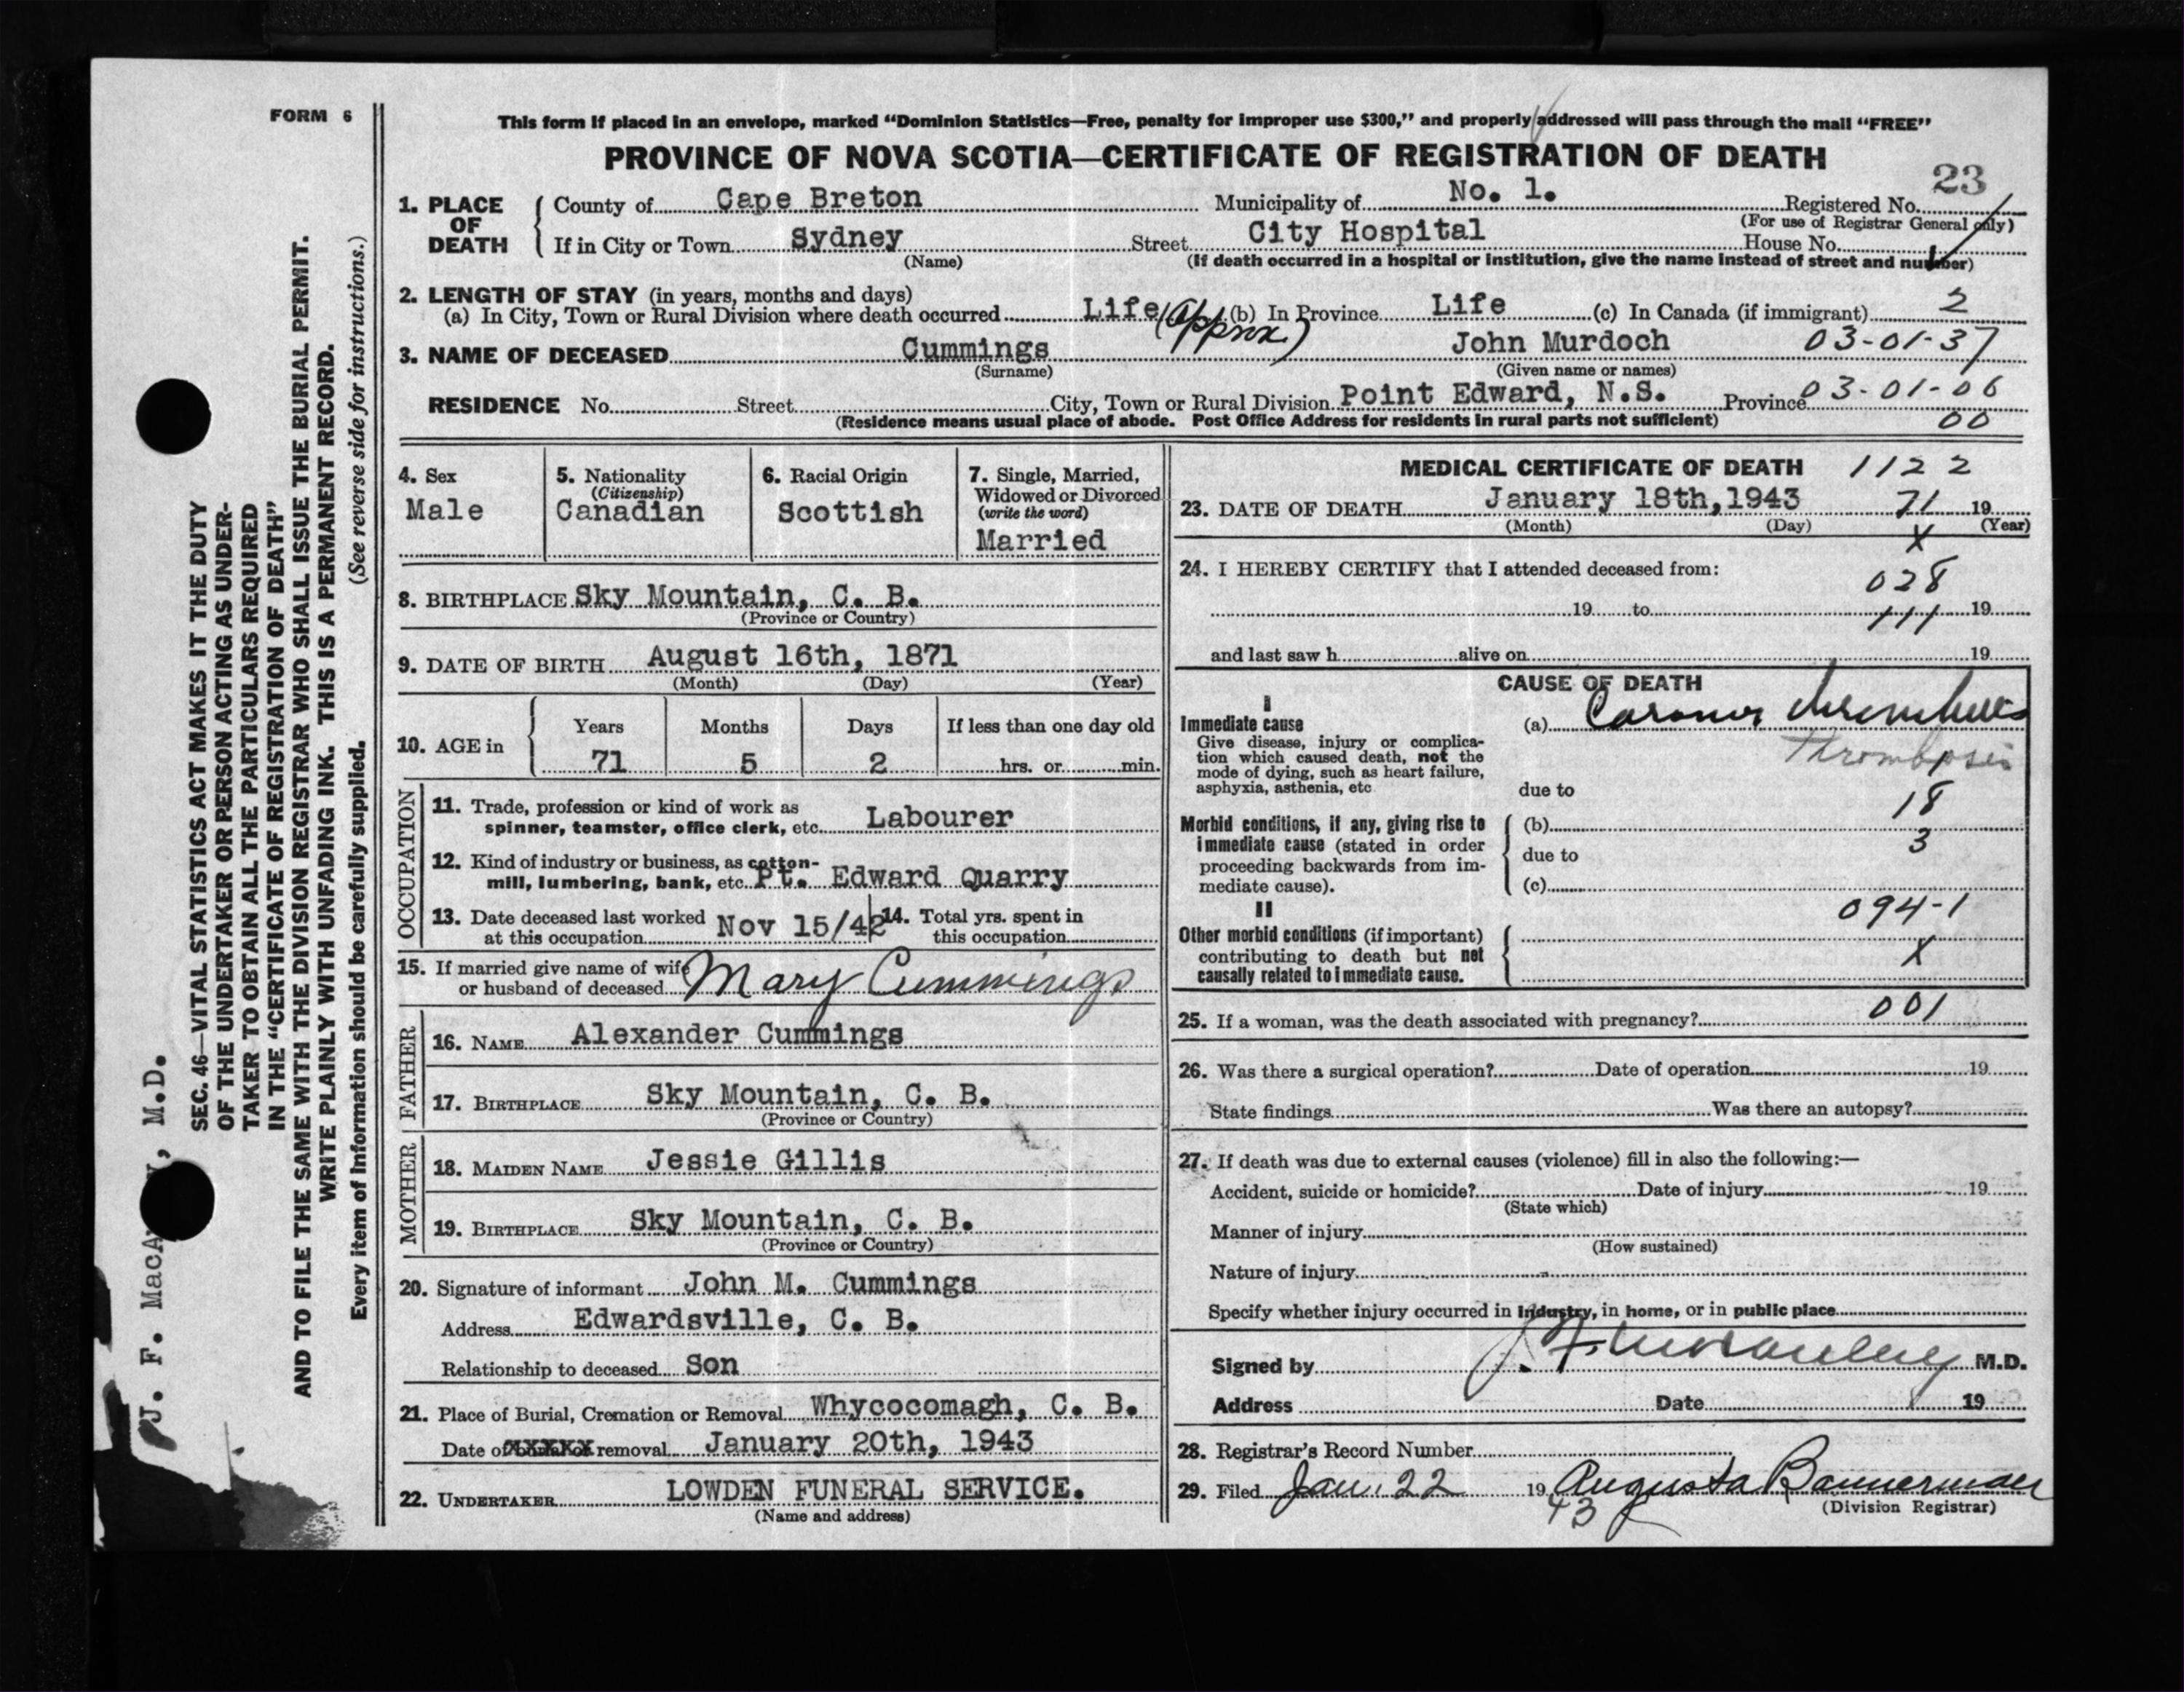 FORM 6
This form if placed in an envelope, marked “Dominion Statistics—Free, penalty for improper use $300,” and properly addressed will pass through the mail “FREE”
PROVINCE OF NOVA SCOTIA—CERTIFICATE OF REGISTRATION OF DEATH
23
1. PLACE OF DEATH
County of Cape Breton Municipality of No. 1. Registered No.
(For use of Registrar General only)
If in City or Town Sydney Street City Hospital House No.
(Name) (If death occurred in a hospital or institution, give the name instead of street and number)
2. LENGTH OF STAY (in years, months and days)
(a) In City, Town or Rural Division where death occurred Life (approx) (b) In Province Life (c) In Canada (if immigrant) 2
3. NAME OF DECEASED Cummings John Murdoch 03-01-37
(Surname) (Given name or names)
RESIDENCE No. Street City, Town or Rural Division Point Edward, N.S. Province 03-01-06
(Residence means usual place of abode. Post Office Address for residents in rural parts not sufficient) 00
4. Sex Male
5. Nationality (Citizenship) Canadian
6. Racial Origin Scottish
7. Single, Married, Widowed or Divorced (write the word) Married
8. BIRTHPLACE Sky Mountain, C. B.
(Province or Country)
9. DATE OF BIRTH August 16th, 1871
(Month) (Day) (Year)
10. AGE in Years Months Days If less than one day old
71 5 2 hrs. or min.
OCCUPATION
11. Trade, profession or kind of work as
spinner, teamster, office clerk, etc. Labourer
12. Kind of industry or business, as cotton-
mill, lumbering, bank, etc. Pt. Edward Quarry
13. Date deceased last worked at this occupation Nov 15/42 14. Total yrs. spent in this occupation
15. If married give name of wife
or husband of deceased Mary Cummings
FATHER
16. NAME Alexander Cummings
17. BIRTHPLACE Sky Mountain, C. B.
(Province or Country)
MOTHER
18. MAIDEN NAME Jessie Gillis
19. BIRTHPLACE Sky Mountain, C. B.
(Province or Country)
20. Signature of informant John M. Cummings
Address Edwardsville, C. B.
Relationship to deceased Son
21. Place of Burial, Cremation or Removal Whycocomagh, C. B.
Date of removal January 20th, 1943
22. UNDERTAKER LOWDEN FUNERAL SERVICE.
(Name and address)
MEDICAL CERTIFICATE OF DEATH 1122
23. DATE OF DEATH January 18th, 1943 71 19
(Month) (Day) X (Year)
24. I HEREBY CERTIFY that I attended deceased from:
028
19 to 111 19
and last saw h alive on 19
CAUSE OF DEATH
I
Immediate cause (a)
Give disease, injury or complica-
tion which caused death, not the
mode of dying, such as heart failure,
asphyxia, asthenia, etc
Thrombosis
due to
18
Morbid conditions, if any, giving rise to
immediate cause (stated in order
proceeding backwards from im-
mediate cause).
(b)
due to 3
(c)
II 094-1
Other morbid conditions (if important)
contributing to death but not
causally related to immediate cause.
X
25. If a woman, was the death associated with pregnancy? 001
26. Was there a surgical operation? Date of operation 19
State findings Was there an autopsy?
27. If death was due to external causes (violence) fill in also the following:—
Accident, suicide or homicide? Date of injury 19
(State which)
Manner of injury
(How sustained)
Nature of injury
Specify whether injury occurred in industry, in home, or in public place
Signed by M.D.
Address Date 19
28. Registrar's Record Number
29. Filed Jan. 22 19 43 Augusta Bannerman
(Division Registrar)
SEC. 46—VITAL STATISTICS ACT MAKES IT THE DUTY
OF THE UNDERTAKER OR PERSON ACTING AS UNDER-
TAKER TO OBTAIN ALL THE PARTICULARS REQUIRED
IN THE “CERTIFICATE OF REGISTRATION OF DEATH”
AND TO FILE THE SAME WITH THE DIVISION REGISTRAR WHO SHALL ISSUE THE BURIAL PERMIT.
WRITE PLAINLY WITH UNFADING INK. THIS IS A PERMANENT RECORD.
Every item of information should be carefully supplied. (See reverse side for instructions.)
J. F. M.D.